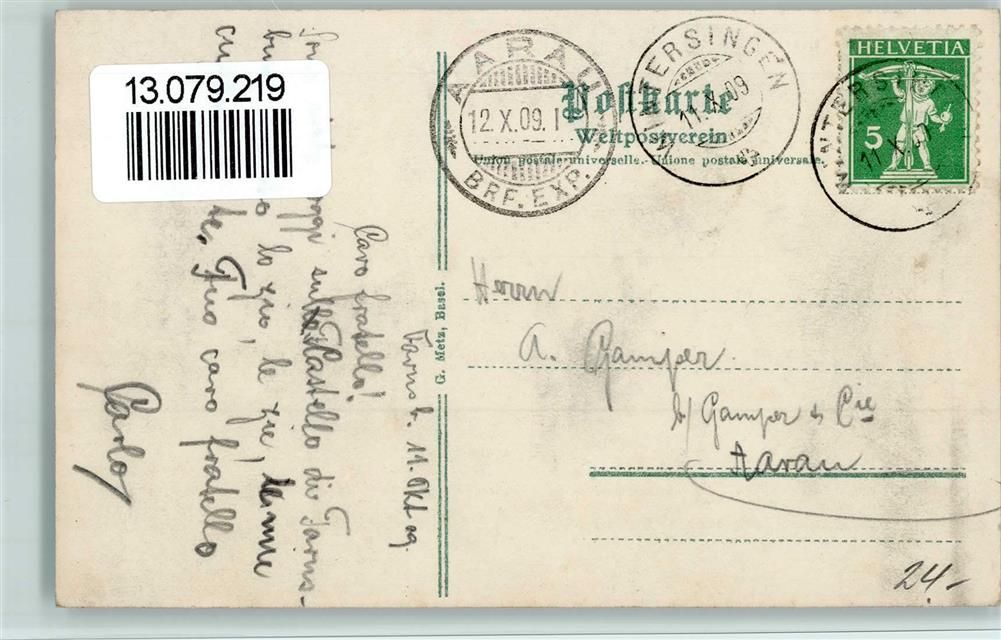 13.079.219
AARAU
12.X.09.1
BRF. EXP.
WINTERSINGEN
11.X.09
HELVETIA
5
Postkarte
Weltpostverein
Union postale universelle. - Unione postale universale.
G. Metz, Basel.
Herrn
A. Gamper
b/ Gamper & Cie
Aarau
Farns b. 11. Okt 09.
Caro fratello!
oggi sul Castello di Farns-
lo zio, le zie,
te. Tuo caro fratello
Carlo
24.-